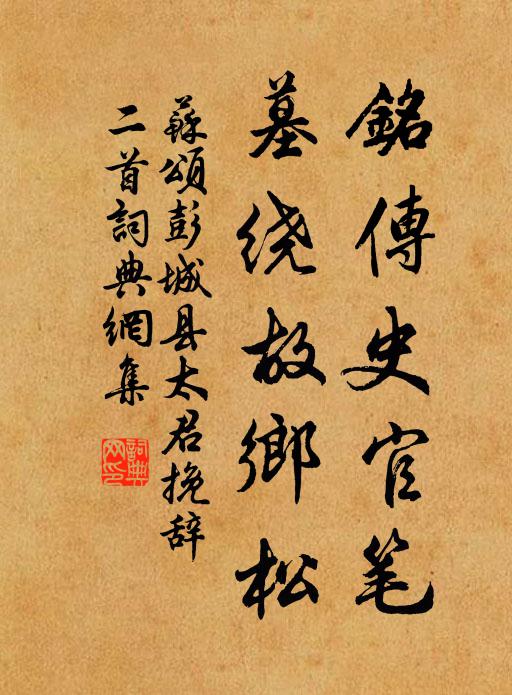 銘傳史官笔
墓绕故鄉松
蘇頌彭城县太君挽辞
二首詞典網集
詞典网印